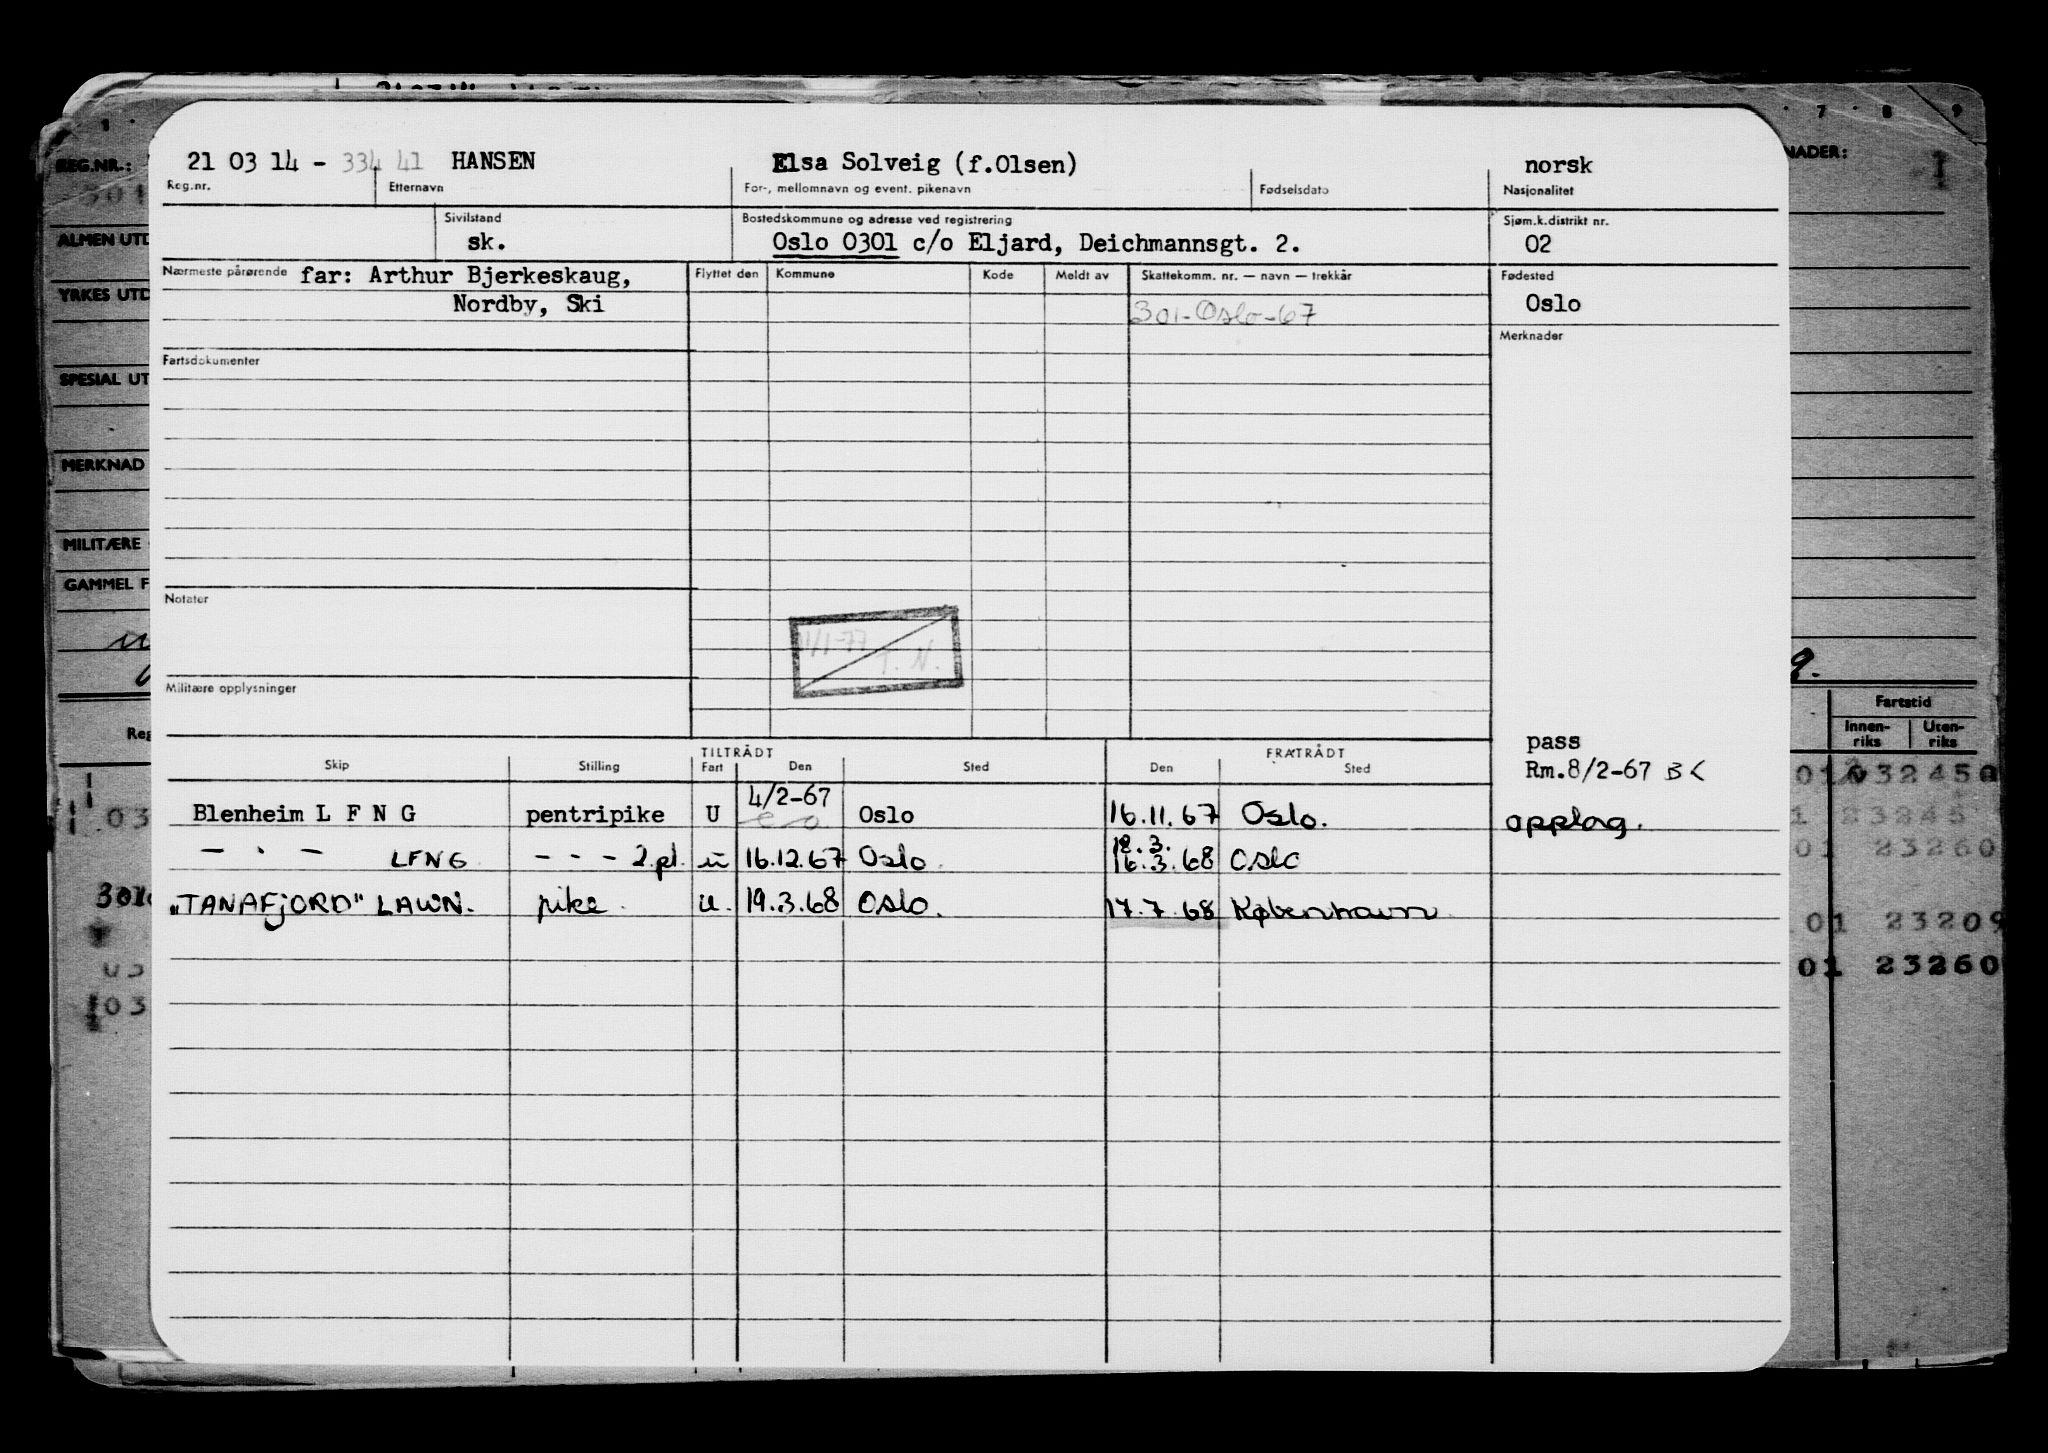 21 03 14 - 334 41 HANSEN Elsa Solveig (f.Olsen) norsk
Reg.nr. Etternavn For-, mellomnavn og event. pikenavn Fødselsdato Nasjonalitet
Sivilstand Bostedskommune og adresse ved registrering Sjøm.k.distrikt nr.
sk. Oslo 0301 c/o Eljard, Deichmannsgt. 2. 02
Nærmeste pårørende far: Arthur Bjerkeskaug, Flyttet den Kommune Kode Meldt av Skattekomm. nr. — navn — trekkår Fødested
Nordby, Ski 301-Oslo-67 Oslo
Merknader
Fartsdokumenter
Notater
11/1-77
T. N.
Militære opplysninger
pass
TILTRÅDT FRATRÅDT
Skip Stilling Fart Den Sted Den Sted Rm.8/2-67 B<
4/2-67
Blenheim L F N G pentripike U Oslo 16.11.67 Oslo. opplag.
18.3.
— · — LFNG - - - 2.pl. u 16.12.67 Oslo. 16.3.68 Oslo
„TANAFJORD" LAWN. pike. u. 19.3.68 Oslo. 17.7.68 København
1 7 8 9
REG.NR.: NADER:
ALMEN UTD
YRKES UTD
SPESIAL UT
MERKNAD
MILITÆRE
GAMMEL F
Reg
Fartstid
Innen-riks Uten-riks
01 23245
01 23260
01 23209
01 23260
03
03
03